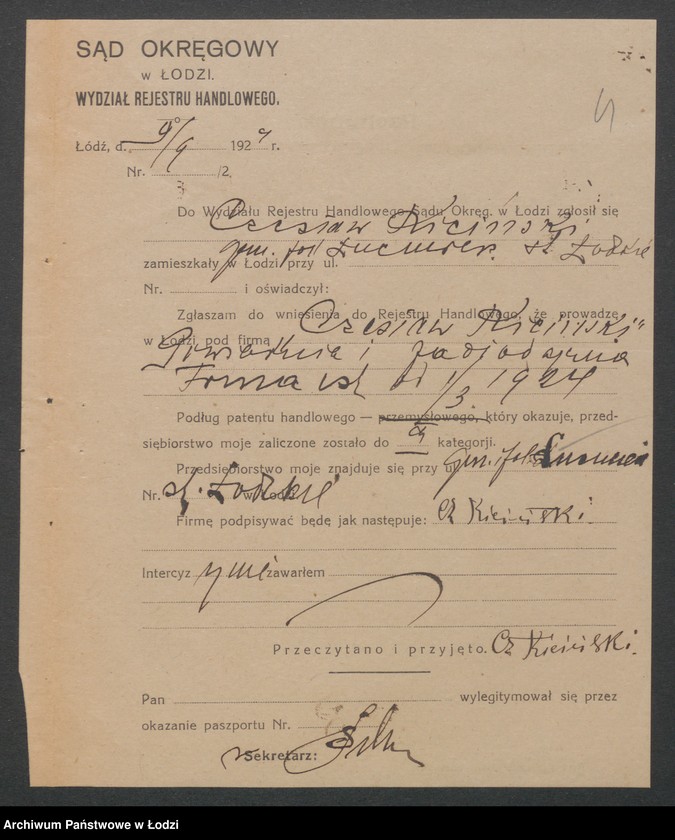 SĄD OKRĘGOWY
w ŁODZI.
WYDZIAŁ REJESTRU HANDLOWEGO.
Łódź, d. 9/9 1924 r.
Nr. /2
Do Wydziału Rejestru Handlowego Sądu Okręg. w Łodzi zgłosił się
Czesław Kiciński
zamieszkały w Łodzi przy ul. gm. fol. st. Łódzkie
Nr. i oświadczył:
Zgłaszam do wniesienia do Rejestru Handlowego, że prowadzę
w Łodzi, pod firmą Czesław Kiciński"
i
Firma ist. od 1/3. 1924
Podług patentu handlowego — przemysłowego, który okazuje, przed-
siębiorstwo moje zaliczone zostało do kategorji.
Przedsiębiorstwo moje znajduje się przy ul. gm. fol.
Nr. w Łodzi st. Łódzkie
Firmę podpisywać będę jak następuje: Cz Kiciński.
Intercyzy nie zawarłem
Przeczytano i przyjęto. Cz Kiciński.
Pan wylegitymował się przez
okazanie paszportu Nr.
Sekretarz:
Archiwum Państwowe w Łodzi